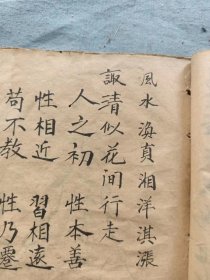 風水海貢湘洋淇漲
諏清似花间行走
人之初 性本善
性相近 習相遠
苟不教 性乃遷